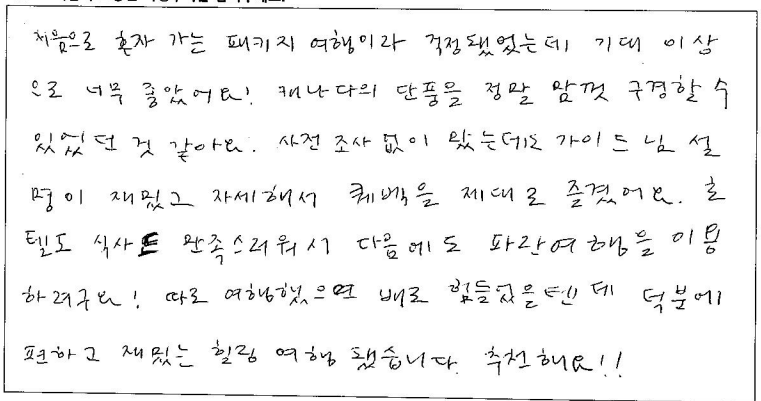 처음으로 혼자 가는 패키지 여행이라 걱정됐었는데 기대 이상
으로 너무 좋았어요! 캐나다의 단풍을 정말 맘껏 구경할 수
있었던 것 같아요. 사전 조사 없이 왔는데도 가이드 님 설
명이 재밌고 자세해서 퀘벡을 제대로 즐겼어요. 호
텔도 식사도 만족스러워서 다음에도 파란여행을 이용
하려구요! 따로 여행했으면 배로 힘들었을텐데 덕분에
편하고 재밌는 힐링 여행 됐습니다. 추천해요!!